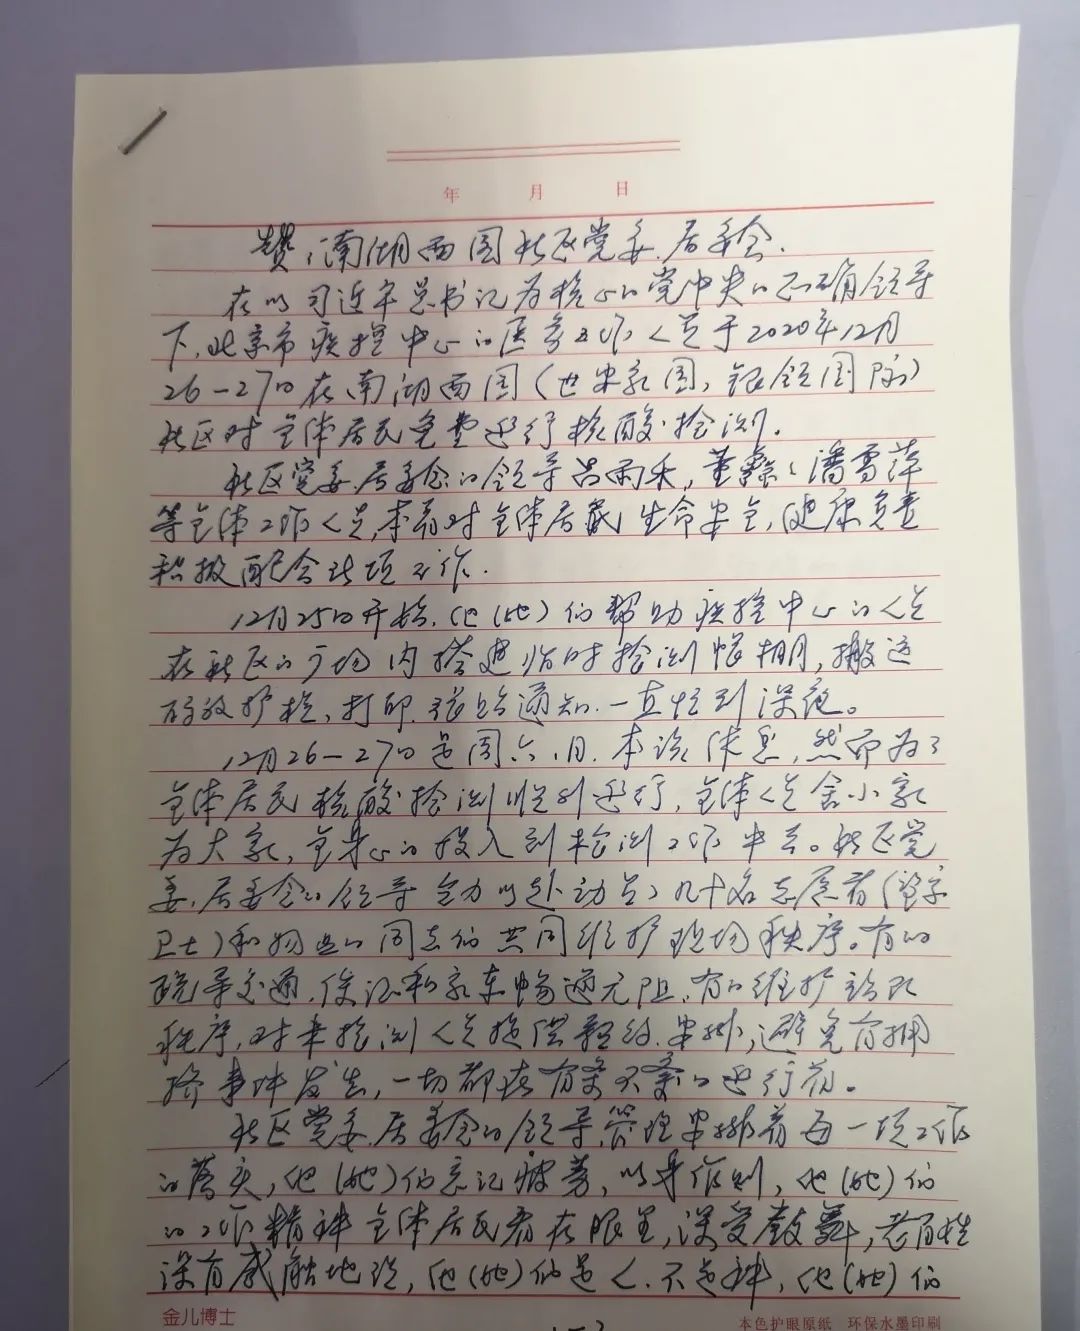 年 月 日
赞:南湖西园社区党委.居委会.
在以习近平总书记为核心的党中央的正确领导
下,北京市疾控中心的医务工作人员于2020年12月
26-27日在南湖西园(世安家园,银领国际)
社区对全体居民免费进行核酸检测.
社区党委.居委会的领导吕雨禾,董 、潘雪萍
等全体工作人员,本着对全体居民生命安全,健康负责
积极配合此项工作.
12月25日开始.他(她)们帮助疾控中心的人员
在社区的广场内搭建临时检测帐棚,搬运
码放护栏,打印.张贴通知.一直忙到深夜。
12月26-27日是周六.日.本该休息,然而为了
全体居民核酸检测顺利进行,全体人员舍小家
为大家,全身心的投入到检测工作中去。社区党
委.居委会的领导全力以赴动员了九十名志愿者(望京
卫士)和物业的同志们共同维护现场秩序。有的
疏导交通.保证私家车畅通无阻,有的维护站队
秩序,对来检测人员提供 .安排,避免有拥
挤事件发生,一切都在有条不紊的进行着。
社区党委.居委会的领导,管理安排着每一项工作
的落实,他(她)们忘记疲劳,以身作则,他(她)们
的工作精神全体居民看在眼里,深受鼓舞,老百姓
深有感触地说,他(她)们是人.不是神,他(她)们
金儿博士
本色护眼原纸 环保水墨印刷